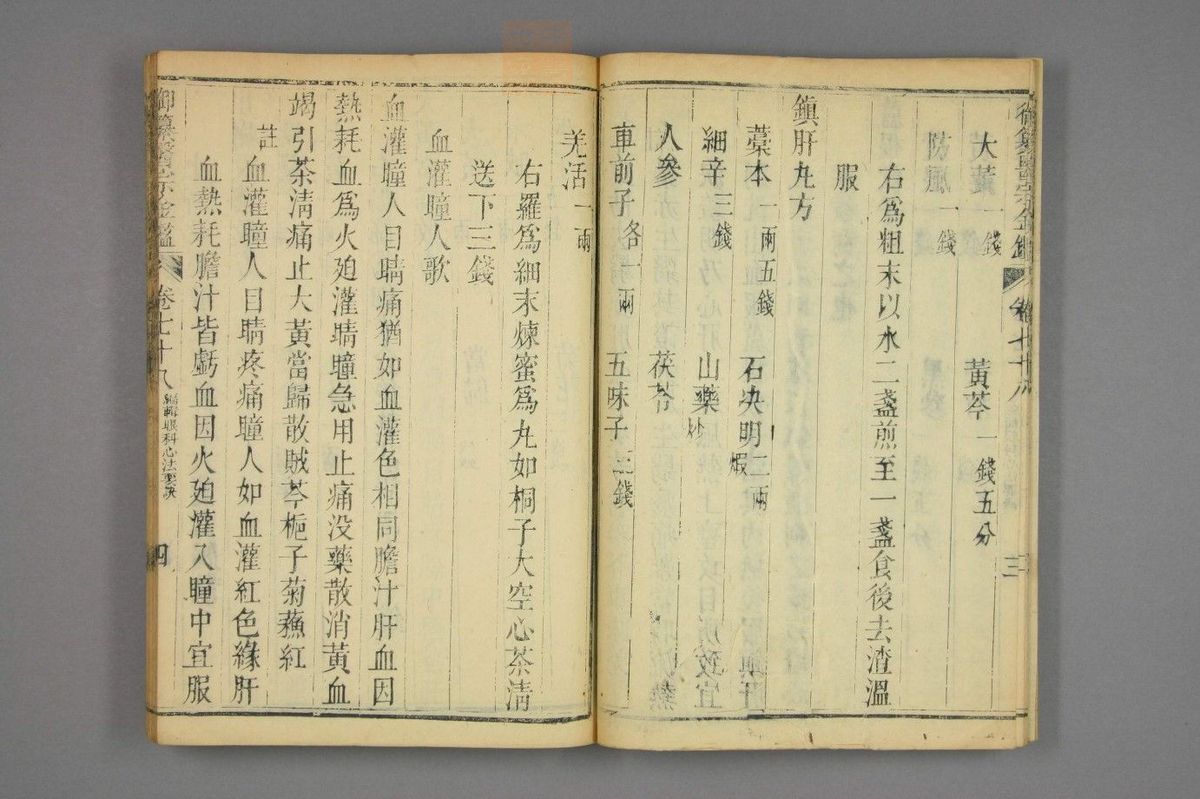 御纂醫宗金鑑 卷七十八 三
大黃一錢 黃芩一錢五分
防風一錢
右爲粗末以水二盞煎至一盞食後去渣溫
服
鎭肝丸方
藁本一兩五錢 石决明二兩煆
細辛三錢 山藥炒
人參 茯苓
車前子各一兩 五味子三錢
羌活一兩
右羅爲細末煉蜜爲丸如桐子大空心茶淸
送下三錢
血灌瞳人歌
血灌瞳人目睛痛猶如血灌色相同膽汁肝血因
熱耗血爲火廹灌睛瞳急用止痛没藥散消黃血
竭引茶淸痛止大黃當歸散賊芩梔子菊蘓紅
註血灌瞳人目睛疼痛瞳人如血灌紅色緣肝
血熱耗膽汁皆虧血因火廹灌入瞳中宜服
御纂醫宗金鑑 卷七十八 編輯眼科心法要訣 四